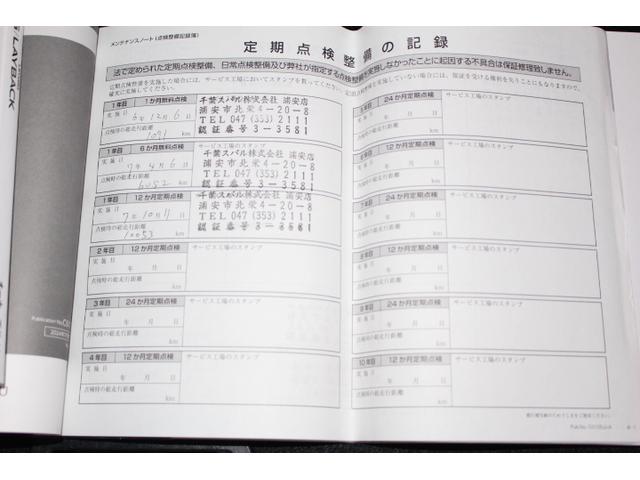 LAYBACK
メンテナンスノート(点検整備記録簿)
定期点検整備の記録
法で定められた定期点検整備、日常点検整備及び弊社が指定する点検整備を実施しなかったことに起因する不具合は保証修理致しません。
1年目 1か月無料点検
実施日 6年12月6日
点検時の総走行距離
km
千葉スバル株式会社 浦安店
浦安市北栄4-20-8
TEL 047 (353) 2111
認証番号3-3581
1年目 6か月無料点検
サービス工場のスタンプ
実施日 7年4月6日
点検時の総走行距離
6052 km
千葉スバル株式会社 浦安店
浦安市北栄4-20-8
TEL 047 (353) 2111
認証番号3-3581
1年目 12か月定期点検
実施日 7年10月11日
点検時の総走行距離
10053 km
千葉スバル株式会社 浦安店
浦安市北栄4-20-8
TEL 047 (353) 2111
認証番号3-3581
2年目 12か月定期点検
サービス工場のスタンプ
実施日
年 月 日
点検時の総走行距離
km
3年目 24か月定期点検
サービス工場のスタンプ
実施日
年 月 日
点検時の総走行距離
km
4年目 12か月定期点検
サービス工場のスタンプ
実施日
年 月 日
点検時の総走行距離
km
24か月定期点検
サービス工場のスタンプ
年 月 日
点検時の総走行距離
km
12か月定期点検
サービス工場のスタンプ
年 月 日
点検時の総走行距離
km
24か月定期点検
サービス工場のスタンプ
年 月 日
点検時の総走行距離
km
12か月定期点検
サービス工場のスタンプ
年 月 日
点検時の総走行距離
km
24か月定期点検
サービス工場のスタンプ
年 月 日
点検時の総走行距離
km
10年目 12か月定期点検
サービス工場のスタンプ
実施日
年 月 日
点検時の総走行距離
km